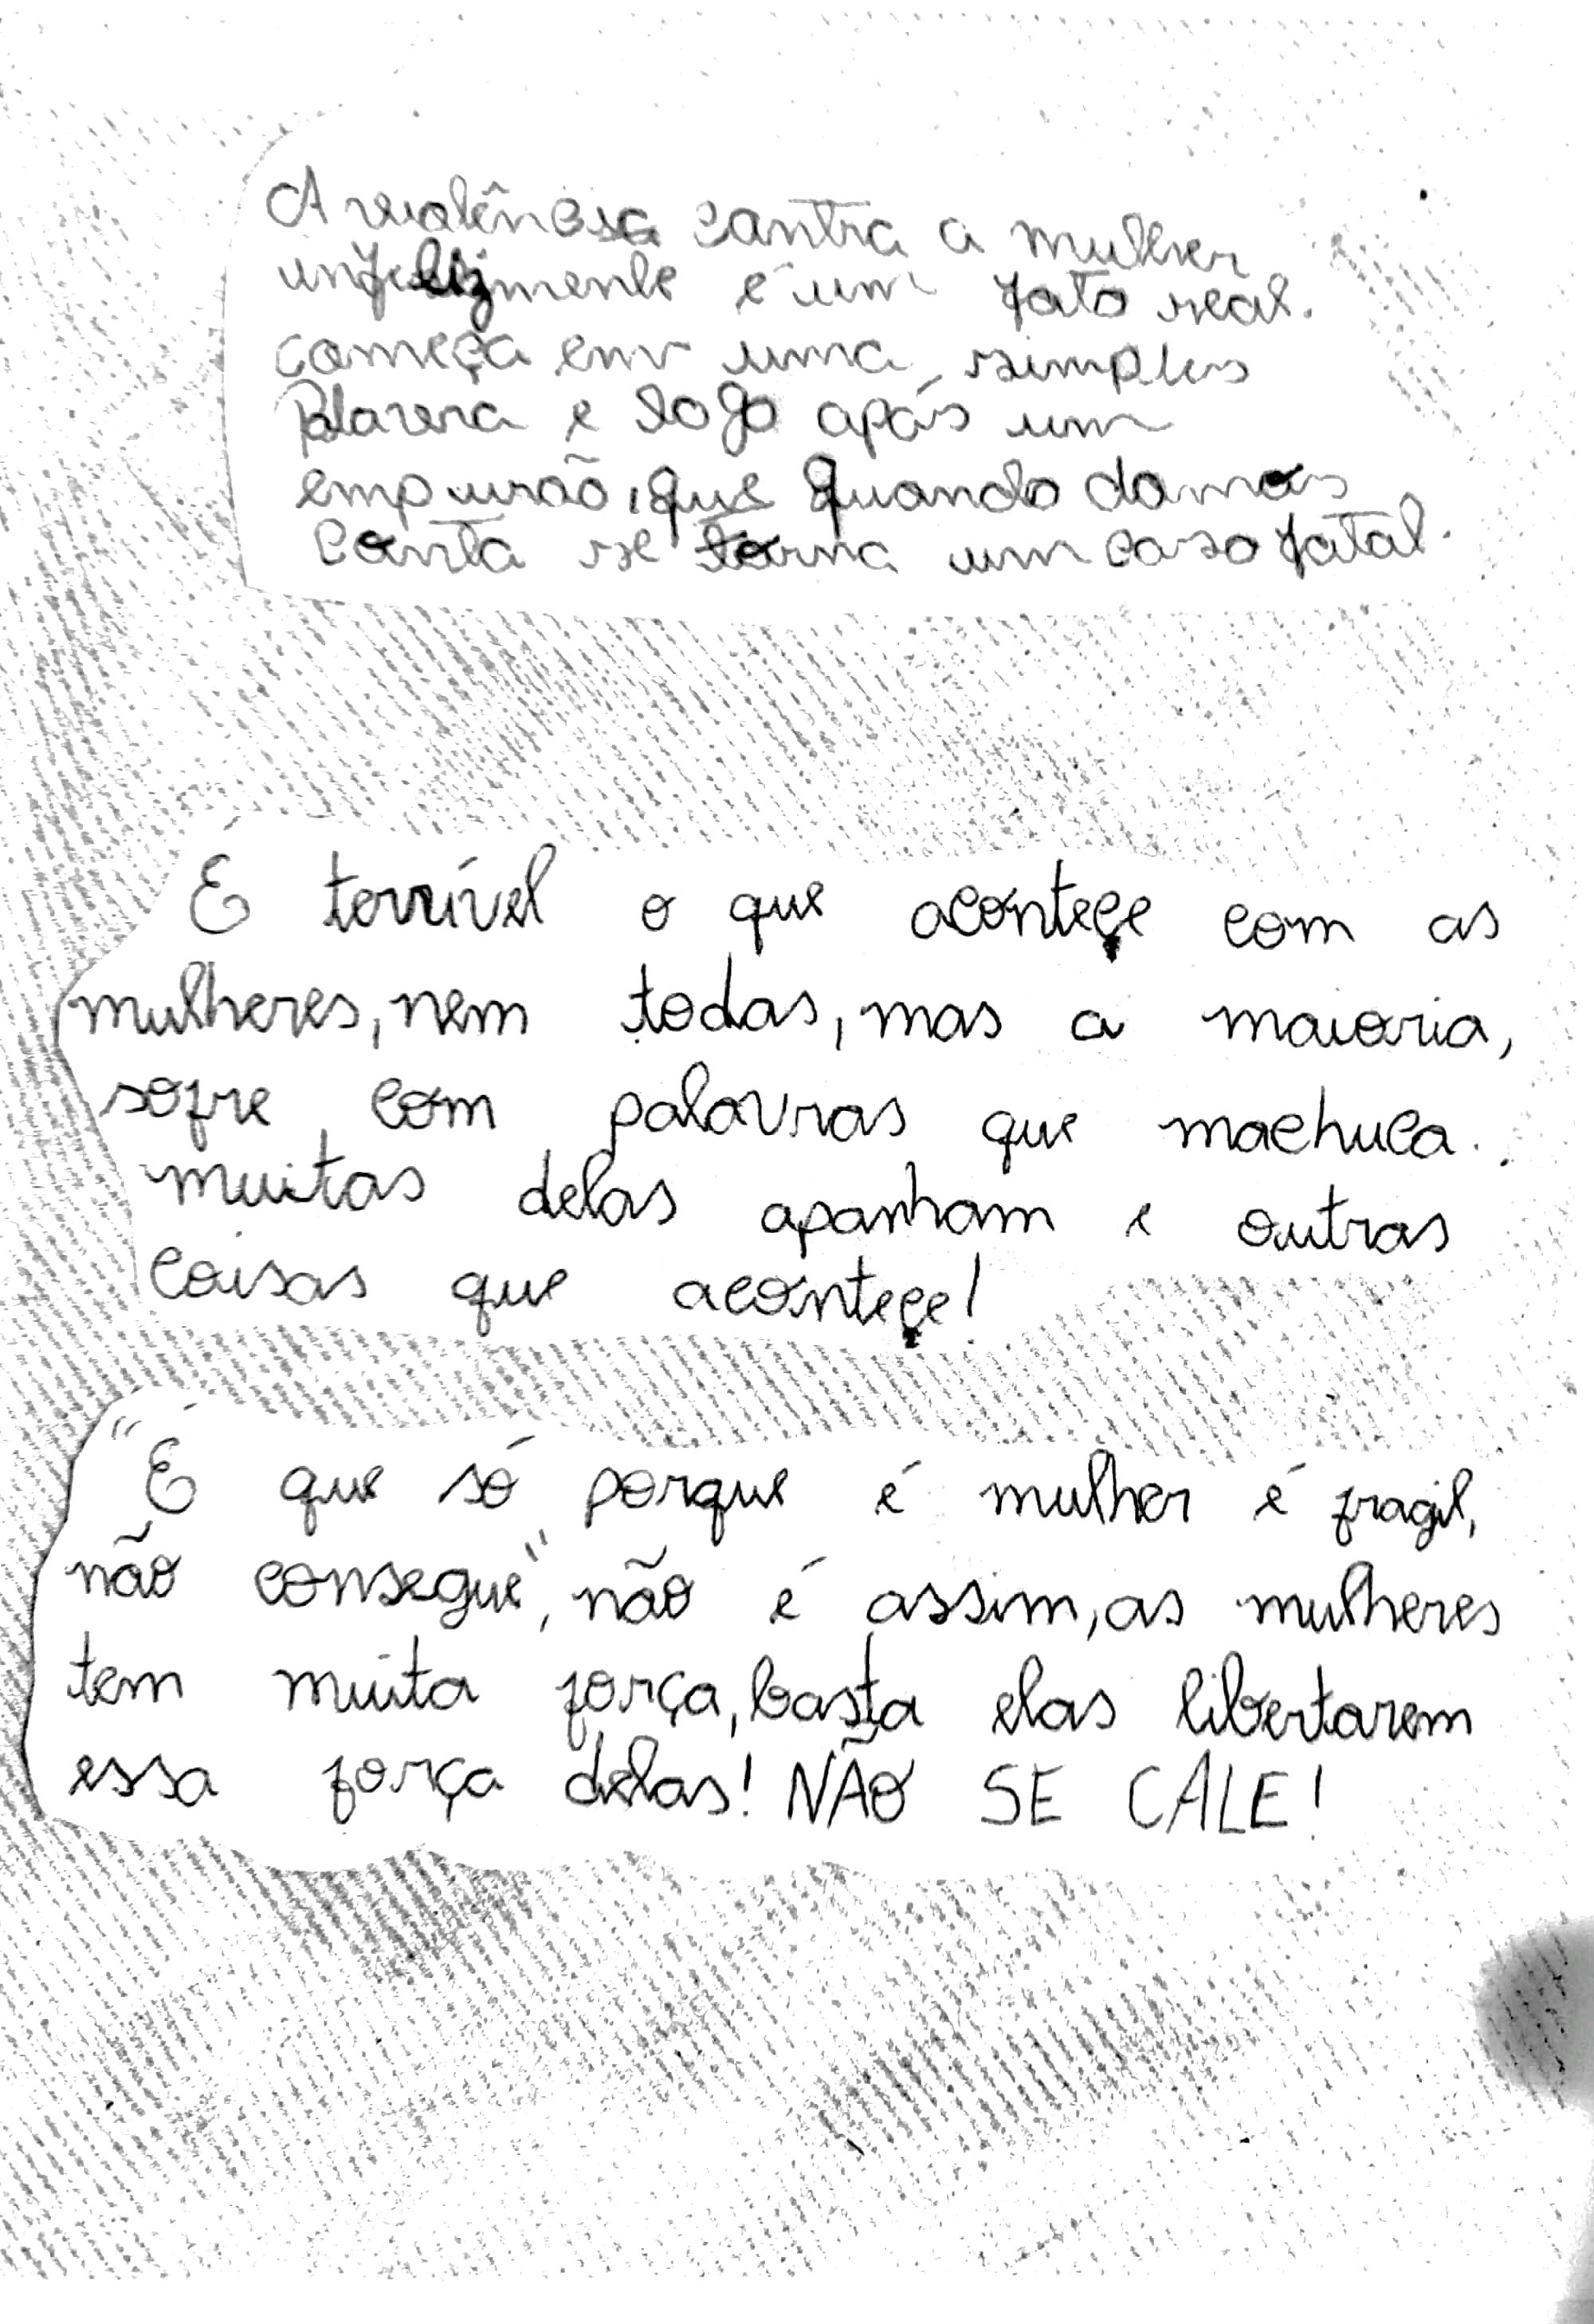 A violência contra a mulher
infelizmente é um fato real.
começa em uma simples
Palavra e logo após um
empurão, que quando damos
Conta se torna um caso fatal.
É terrível o que aconteçe com as
mulheres, nem todas, mas a maioria,
sofre com palavras que machuca.
muitas delas apanham e outras
coisas que aconteçe!
"É que só porque é mulher é fragil,
não consegue", não é assim, as mulheres
tem muita força, basta elas libertarem
essa força delas! NÃO SE CALE!